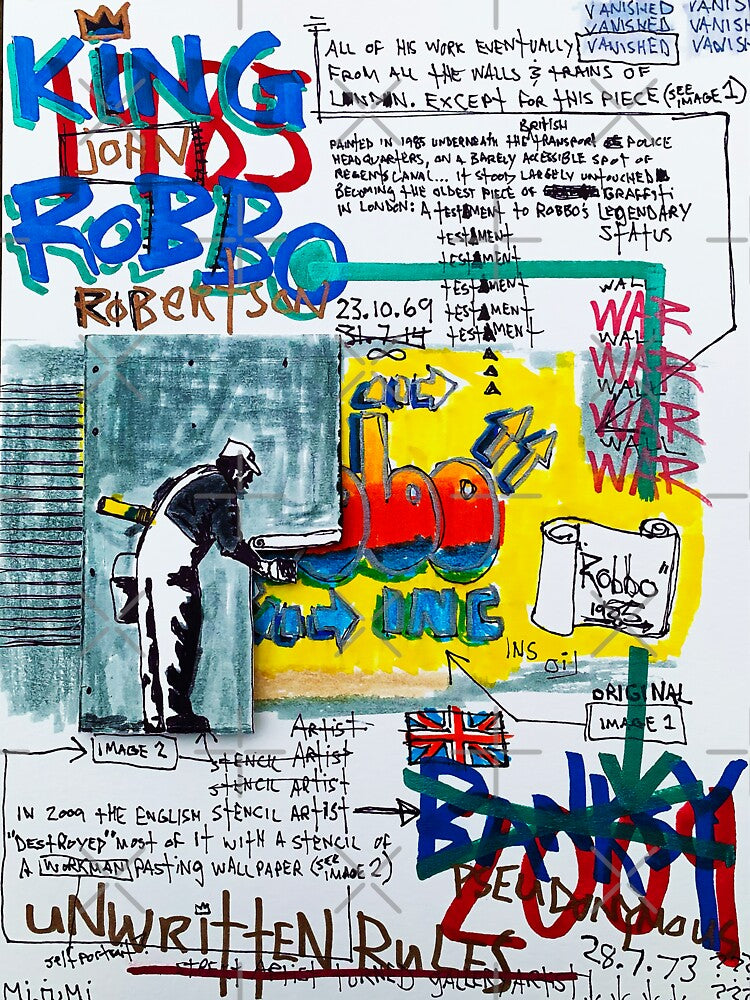 KING
JOHN
ROBBO
ROBERTSON
VANISHED VANIS
VANISHED VANISH
VANISHED VANISH
ALL OF HIS WORK EVENTUALLY
FROM ALL THE WALLS & TRAINS OF
LONDON. EXCEPT FOR THIS PIECE (SEE IMAGE 1)
BRITISH
PAINTED IN 1985 UNDERNEATH THE TRANSPORT POLICE
HEADQUARTERS, ON A BARELY ACESSIBLE SPOT OF
REGENTS CANAL... IT STOOD LARGELY UNTOUCHED
BECOMING THE OLDEST PIECE OF GRAFFITI
IN LONDON: A TESTAMENT TO ROBBO'S LEGENDARY
STATUS
TESTAMENT
TESTAMENT
TESTAMENT
TESTAMENT
TESTAMENT
23.10.69
31.7.14
∞
WALL
WAR
WALL
WAR
WALL
WAR
WALL
WAR
INC
"Robbo"
1985
ORIGINAL
IMAGE 1
IMAGE 2
ARTIST
STENCIL ARTIST
STENCIL ARTIST
IN 2009 THE ENGLISH STENCIL ARTIST
"DESTROYED" MOST OF IT WITH A STENCIL OF
A WORKMAN PASTING WALLPAPER (SEE IMAGE 2)
BANKSY
2009
PSEUDONYMOUS
28.7.73 ???
UNWRITTEN RULES
self portrait
STREET ARTIST TURNED GALLERY ARTIST